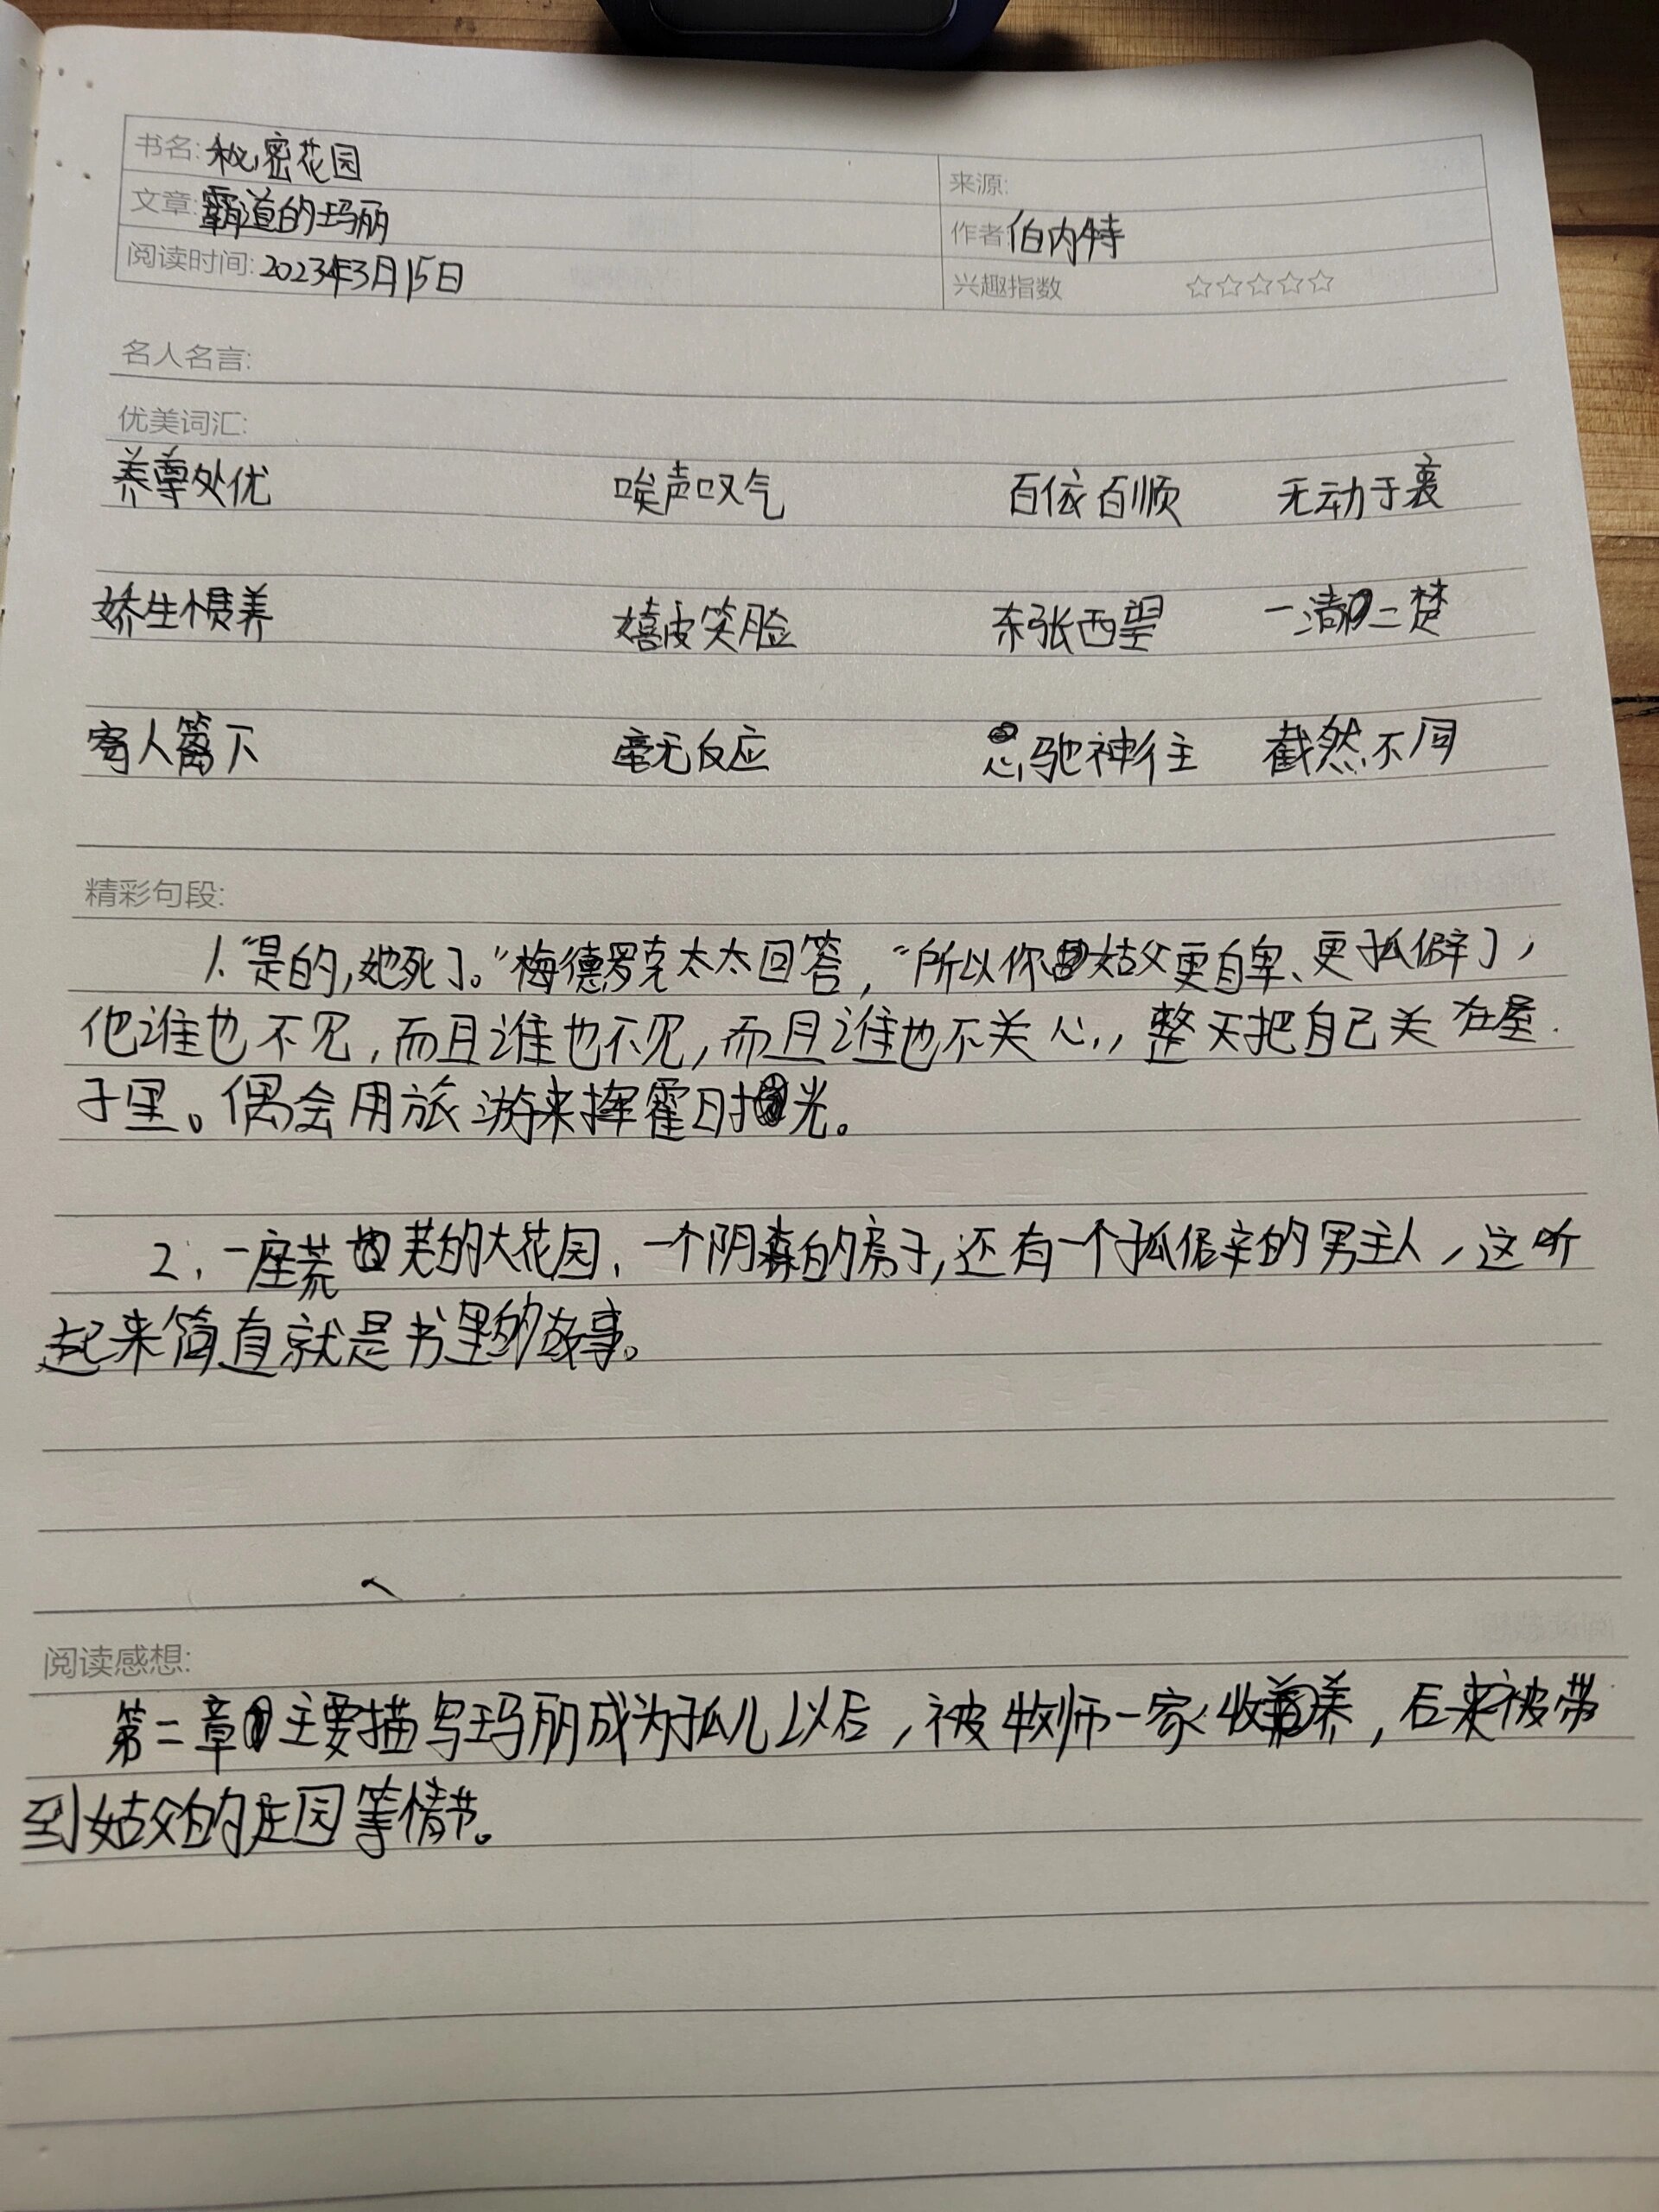 书名: 秘密花园
来源:
文章: 霸道的玛丽
作者: 伯内特
阅读时间: 2023年3月15日
兴趣指数 ☆☆☆☆☆
名人名言:
优美词汇:
养尊处优 唉声叹气 百依百顺 无动于衷
娇生惯养 嬉皮笑脸 东张西望 一清二楚
寄人篱下 毫无反应 心驰神往 截然不同
精彩句段:
1."是的,她死了。"梅德罗克太太回答,"所以你姑父更自卑、更孤僻了,
他谁也不见,而且谁也不见,而且谁也不关心,,整天把自己关在屋
子里。偶会用旅游来挥霍时光。
2、一座荒芜的大花园、一个阴森的房子,还有一个孤僻的男主人,这听
起来简直就是书里的故事。
阅读感想:
第二章主要描写玛丽成为孤儿以后,被牧师一家收养,后来被带
到姑父的庄园等情节。